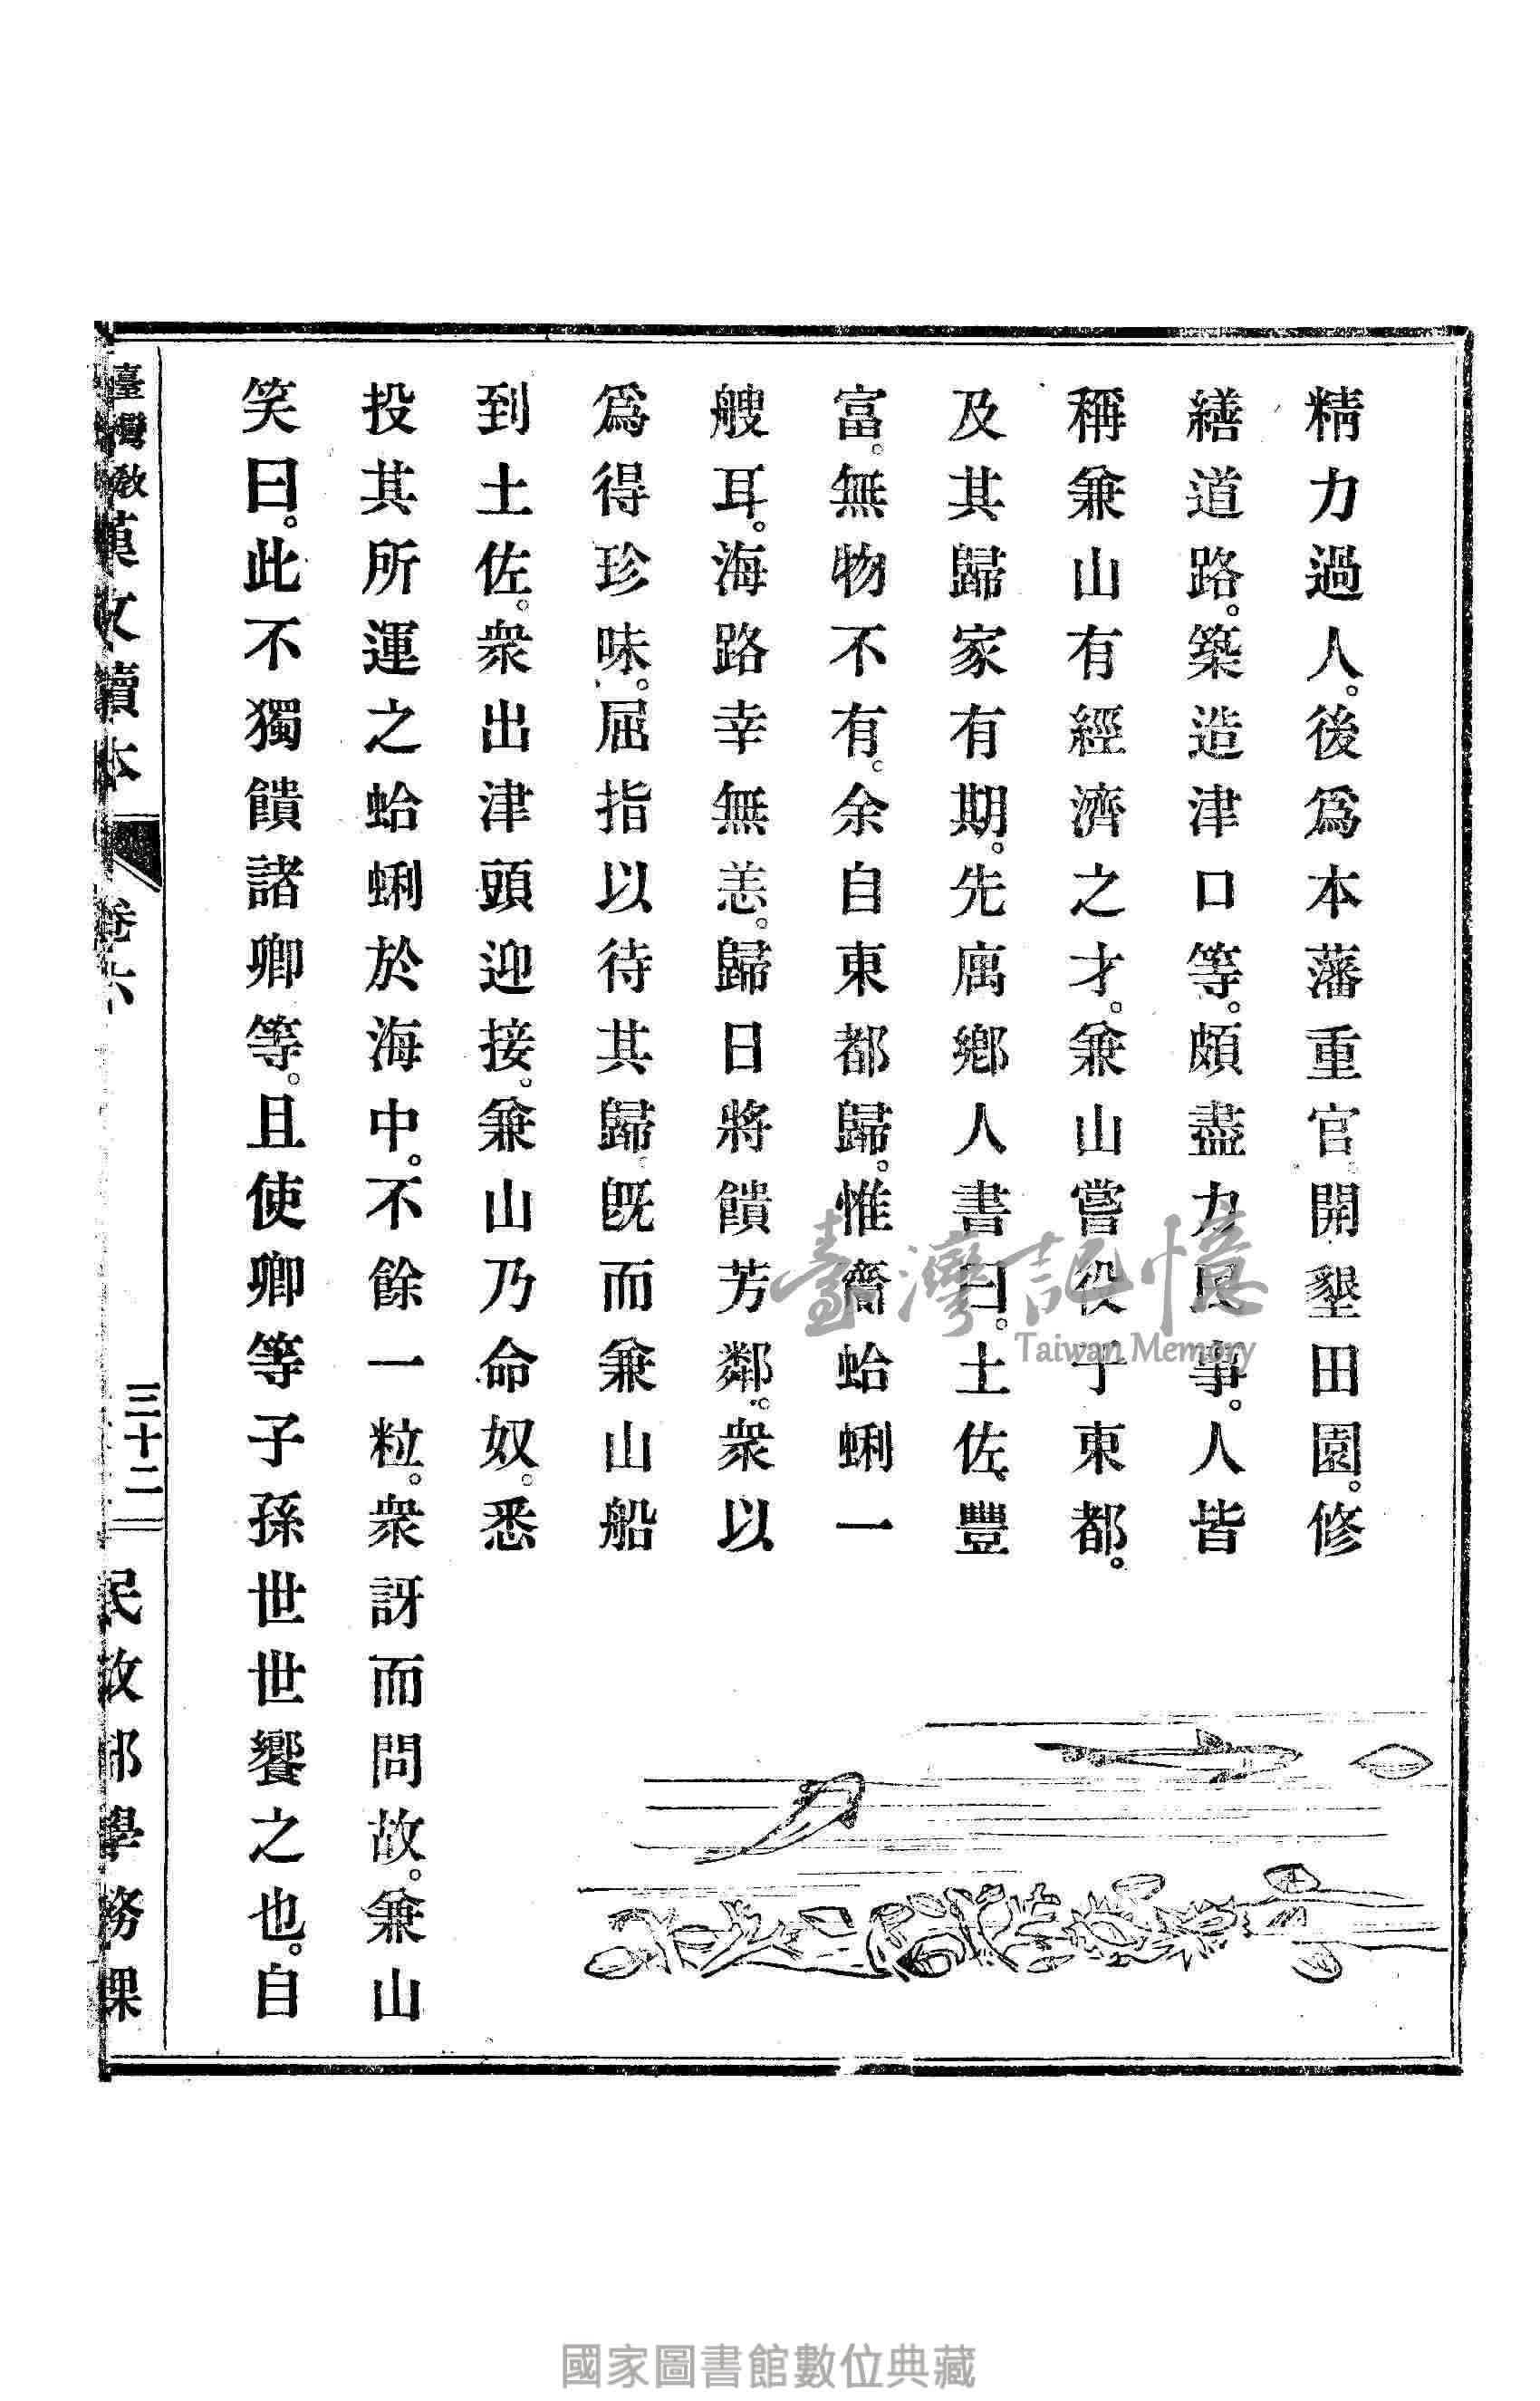 精力過人。後爲本藩重官開墾田園。修
繕道路。築造津口等。頗盡力民事。人皆
稱兼山有經濟之才。兼山嘗役于東都。
及其歸家有期。先寓鄉人書曰。土佐豐
富。無物不有。余自東都歸。惟齎蛤蜊一
艘耳。海路幸無恙。歸日將饋芳鄰。衆以
爲得珍味。屈指以待其歸。旣而兼山船
到土佐。衆出津頭迎接。兼山乃命奴。悉
投其所運之蛤蜊於海中。不餘一粒。衆訝而問故。兼山
笑曰。此不獨饋諸卿等。且使卿等子孫世世饗之也。自
臺灣教
漢文讀本
卷六
三十二
民政部學務課
臺灣記憶
Taiwan Memory
國家圖書館數位典藏